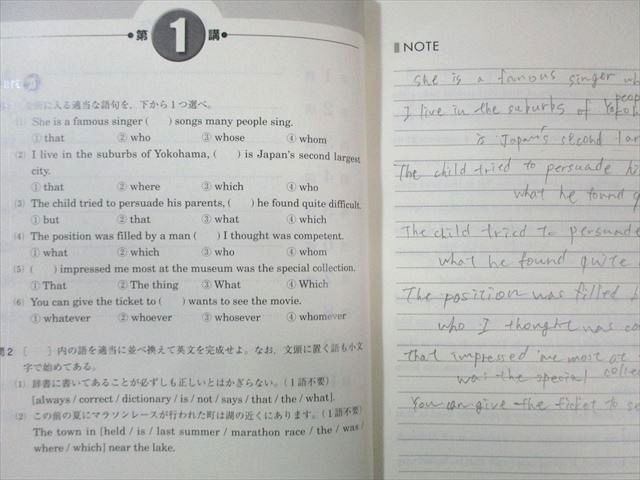 第 1 講
に入る適当な語句を、下から1つ選べ。
(1) She is a famous singer (　) songs many people sing.
① that ② who ③ whose ④ whom
(2) I live in the suburbs of Yokohama, (　) is Japan's second largest
city.
① that ② where ③ which ④ who
(3) The child tried to persuade his parents, (　) he found quite difficult.
① but ② that ③ what ④ which
(4) The position was filled by a man (　) I thought was competent.
① what ② which ③ who ④ whom
(5) (　) impressed me most at the museum was the special collection.
① That ② The thing ③ What ④ Which
(6) You can give the ticket to (　) wants to see the movie.
① whatever ② whoever ③ whosever ④ whomever
問2 [　] 内の語を適当に並べ換えて英文を完成せよ。なお、文頭に置く語も小文
字で始めてある。
(1) 辞書に書いてあることが必ずしも正しいとはかぎらない。(1語不要)
[always / correct / dictionary / is / not / says / that / the / what].
(2) この前の夏にマラソンレースが行われた町は湖の近くにあります。(1語不要)
The town in [held / is / last summer / marathon race / the / was /
where / which] near the lake.
NOTE
She is a famous singer
people
I live in the suburbs of
is Japan's second
The child tried to persuade
what he found
The child tried to persuade
what he found quite
The position was filled
who I thought was
That impressed me most
was the special
You can give the ticket to